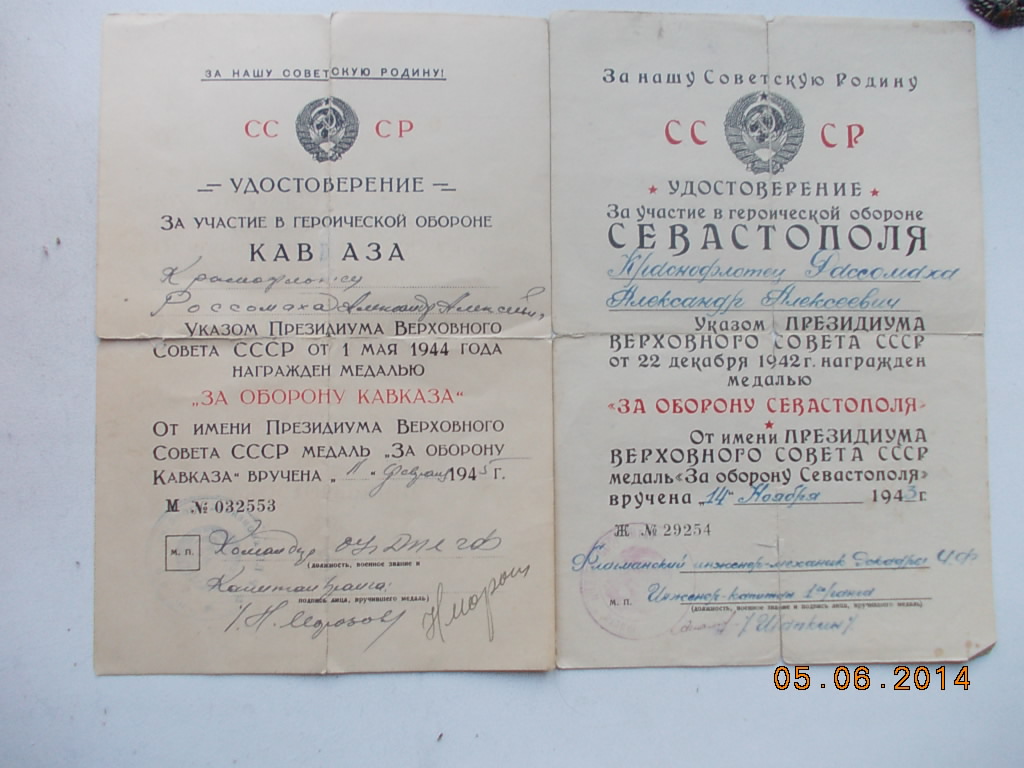 ЗА НАШУ СОВЕТСКУЮ РОДИНУ!
СС СР
УДОСТОВЕРЕНИЕ
ЗА УЧАСТИЕ В ГЕРОИЧЕСКОЙ ОБОРОНЕ
КАВКАЗА
Краснофлотцу
Россомаха Александр Алексеевич
УКАЗОМ ПРЕЗИДИУМА ВЕРХОВНОГО
СОВЕТА СССР ОТ 1 МАЯ 1944 ГОДА
НАГРАЖДЕН МЕДАЛЬЮ
„ЗА ОБОРОНУ КАВКАЗА“
ОТ ИМЕНИ ПРЕЗИДИУМА ВЕРХОВНОГО
СОВЕТА СССР МЕДАЛЬ „ЗА ОБОРОНУ
КАВКАЗА“ ВРУЧЕНА „11“ февраля 1945 г.
М № 032553
м. п.
Командир
(должность, военное звание и
Капитан ранга
подпись лица, вручившего медаль)
Морозов
За нашу Советскую Родину
СС СР
УДОСТОВЕРЕНИЕ
За участие в героической обороне
СЕВАСТОПОЛЯ
Краснофлотец Рассомаха
Александр Алексеевич
Указом ПРЕЗИДИУМА
ВЕРХОВНОГО СОВЕТА СССР
от 22 декабря 1942 г. награжден
медалью
«ЗА ОБОРОНУ СЕВАСТОПОЛЯ»
От имени ПРЕЗИДИУМА
ВЕРХОВНОГО СОВЕТА СССР
медаль «За оборону Севастополя»
вручена „14“ Ноября 1943 г.
Ж № 29254
Флагманский инженер-механик ЧФ
м. п. Инженер-капитан 1го ранга
(должность, военное звание и подпись лица, вручившего медаль)
/Шапкин/
05.06.2014